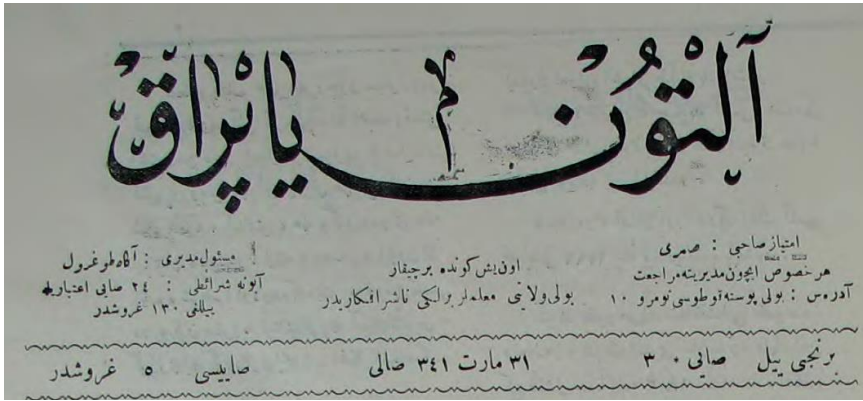 آلتون یاپراق
امتیاز صاحبی : صمری
هر خصوص ایچون مدیریته مراجعت
آدرس : بولی پوسته قوطوسی نومرو ١٠
اون بش كونده بر چیقار
بولی ولایتی معلملر برلكی ناشر افكاریدر
مسئول مدیری : آگاه طوغرول
آبونه شرائطی : ٢٤ صایی اعتباریله
ییللغی ١٣٠ غروشدر
برنجی ییل صایی ٣٠
٣١ مارت ٣٤١ صالی
صاییسی ٥ غروشدر